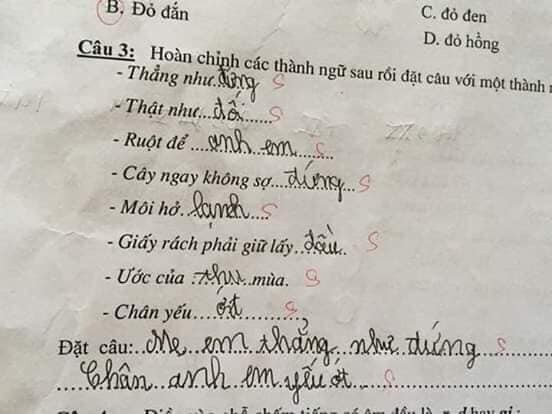 B. Đỏ đắn
C. đỏ đen
D. đỏ hồng
Câu 3: Hoàn chỉnh các thành ngữ sau rồi đặt câu với một thành
- Thẳng như đứng S
- Thật như...đối...... S
- Ruột để ...anh em... S
- Cây ngay không sợ...đứng... S
- Môi hở..lạnh... S
- Giấy rách phải giữ lấy..đầu.. S
- Ước của .thu..mùa. S
- Chân yếu....ớt...... S
Đặt câu:..Mẹ..em thẳng...như..dứng S
....Chân..anh em yếu ớt.... S